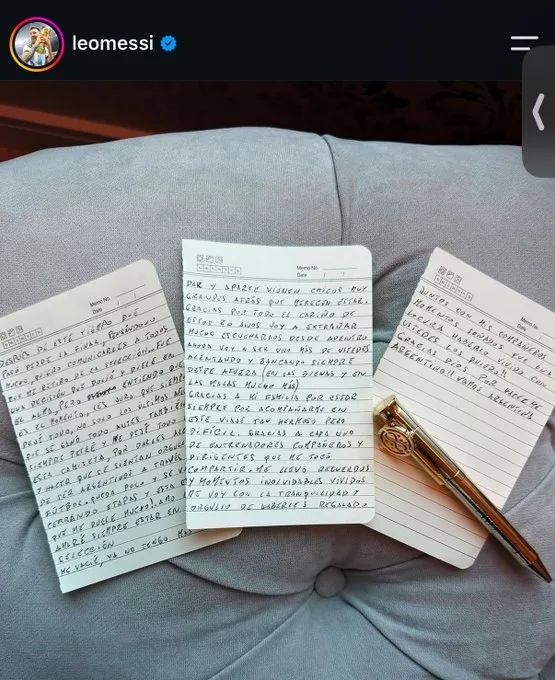 leomessi
Memo No.
Date / /
DESPUÉS DE ESTE TIEMPO QUE
PASÓ DESDE LA FINAL, PENSANDOLO
MUCHO, QUIERO COMUNICARLES A TODOS
QUE ME RETIRO DE LA SELECCIÓN. FUE
UNA DECISIÓN QUE DOLIÓ Y DUELE EN
EL ALMA, PERO ENTIENDO QUE
ES EL MOMENTO. LES JURO QUE SIEMPRE
DEJÉ TODO, NO SOLO LOS ÚLTIMOS AÑOS
QUE SE GANÓ TODO ANTES TAMBIÉN
SIEMPRE PELEÉ Y ME DEJÉ TODO
ESTA CAMISETA, POR DARLES
Y HACER QUE SE SIENTAN
DE SER ARGENTINOS A TRAVÉS
FÚTBOL. QUEDA POCO Y SE
CERRANDO ETAPAS Y ESTA
QUE ME DUELE MUCHO. AMO
AMARÉ SIEMPRE ESTAR EN
SELECCIÓN
ME VACIÉ, YA NO TENGO
Memo No.
Date / /
DAR Y APARTE VIENEN CHICOS MUY
GRANDES ATRÁS QUE MERECEN ESTAR.
GRACIAS POR TODO EL CARIÑO DE
ESTOS 20 AÑOS VOY A EXTRAÑAR
MUCHO ESCUCHARLOS DESDE ADENTRO
AHORA VOY A SER UNO MÁS DE USTEDES
ALENTANDO Y BANCANDO SIEMPRE
DESDE AFUERA (EN LAS BUENAS Y EN
LAS MALAS MUCHO MÁS)
GRACIAS A MI FAMILIA POR ESTAR
SIEMPRE POR ACOMPAÑARME EN
ESTE VIAJE TAN HERMOSO PERO
DIFÍCIL. GRACIAS A CADA UNO
DE ENTRENADORES COMPAÑEROS Y
DIRIGENTES QUE ME TOCÓ
COMPARTIR. ME LLEVO RECUERDOS
Y MOMENTOS INOLVIDABLES VIVIDOS
ME VOY CON LA TRANQUILIDAD Y
ORGULLO DE HABERLES REGALADO
Memo No.
Date / /
JUNTOS CON MIS COMPAÑEROS
MOMENTOS SOÑADOS QUE EN
LOCURA HABERLO VIVIDO CON
USTEDES LOS QUIERO!!
GRACIAS DIOS POR HACERME
ARGENTINO!! VAMOS ARGENTINA